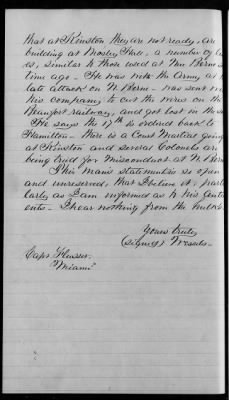 that at Kinston they are not ready, are
building at Mosley Hall, a number of
as, similar to those used at New Berne
time ago – He was with the Army, as
late attack on N. Berne – was sent
his company to cut the wires on the
Beaufort railway, and got lost in the
He says the 17th is ordered back to
Hamilton – there is a Court Martial going
at Kinston and several Colonels are
being tried for misconduct at N. Berne
This mans statement is so open
and unreserved, that I believe it, parti
larly as I am informed as to his ante
ents – I hear nothing from the
Yours truly
(signed) Wessels –
Capt Flusser.
"Miami"